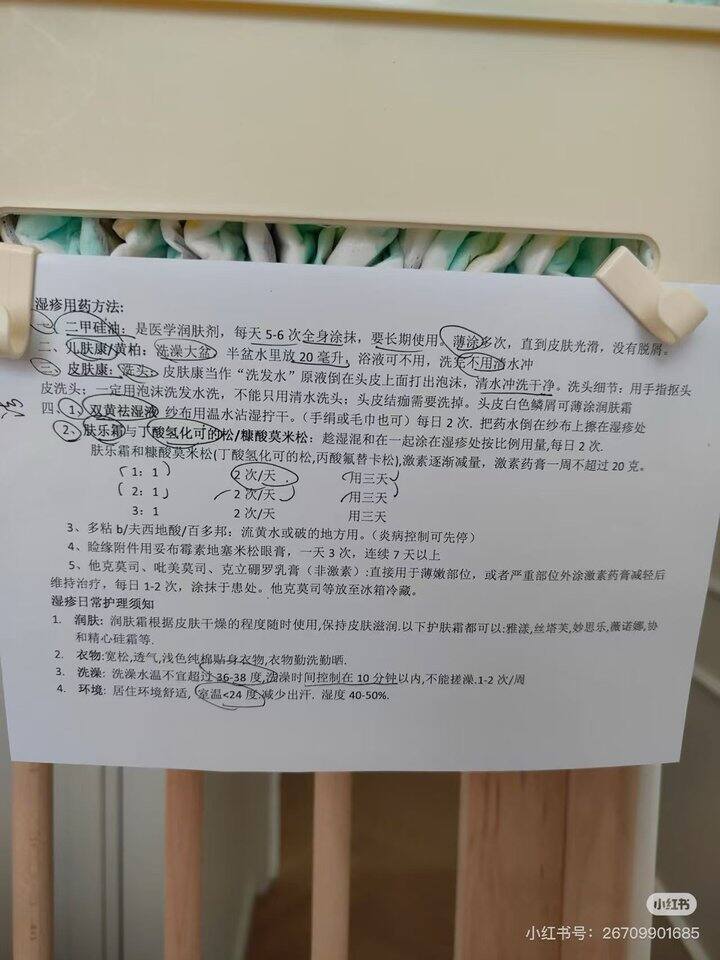 湿疹用药方法:
一、二甲硅油：是医学润肤剂，每天 5-6 次全身涂抹，要长期使用。薄涂多次，直到皮肤光滑，没有脱屑。
二、儿肤康/黄柏：洗澡大盆 半盆水里放 20 毫升，浴液可不用，洗完不用清水冲
三、皮肤康：洗头：皮肤康当作“洗发水”原液倒在头皮上面打出泡沫，清水冲洗干净。洗头细节：用手指抠头
皮洗头；一定用泡沫洗发水洗，不能只用清水洗头；头皮结痂需要洗掉。头皮白色鳞屑可薄涂润肤霜
四、1、双黄祛湿液 纱布用温水沾湿拧干。（手绢或毛巾也可）每日 2 次. 把药水倒在纱布上擦在湿疹处
2、肤乐霜与丁酸氢化可的松/糠酸莫米松：趁湿混和在一起涂在湿疹处按比例用量,每日 2 次.
肤乐霜和糠酸莫米松(丁酸氢化可的松,丙酸氟替卡松),激素逐渐减量，激素药膏一周不超过 20 克。
1：1 2 次/天 用三天
2：1 2 次/天 用三天
3：1 2 次/天 用三天
3、多粘 b/夫西地酸/百多邦：流黄水或破的地方用。（炎病控制可先停）
4、睑缘附件用妥布霉素地塞米松眼膏，一天 3 次，连续 7 天以上
5、他克莫司、吡美莫司、克立硼罗乳膏（非激素）:直接用于薄嫩部位，或者严重部位外涂激素药膏减轻后
维持治疗，每日 1-2 次，涂抹于患处。他克莫司等放至冰箱冷藏。
湿疹日常护理须知
1. 润肤: 润肤霜根据皮肤干燥的程度随时使用,保持皮肤滋润.以下护肤霜都可以:雅漾,丝塔芙,妙思乐,薇诺娜,协
和精心硅霜等.
2. 衣物:宽松,透气,浅色纯棉贴身衣物,衣物勤洗勤晒.
3. 洗澡: 洗澡水温不宜超过 36-38 度,洗澡时间控制在 10 分钟以内,不能搓澡.1-2 次/周
4. 环境: 居住环境舒适, 室温<24 度.减少出汗. 湿度 40-50%.
小红书
小红书号：26709901685